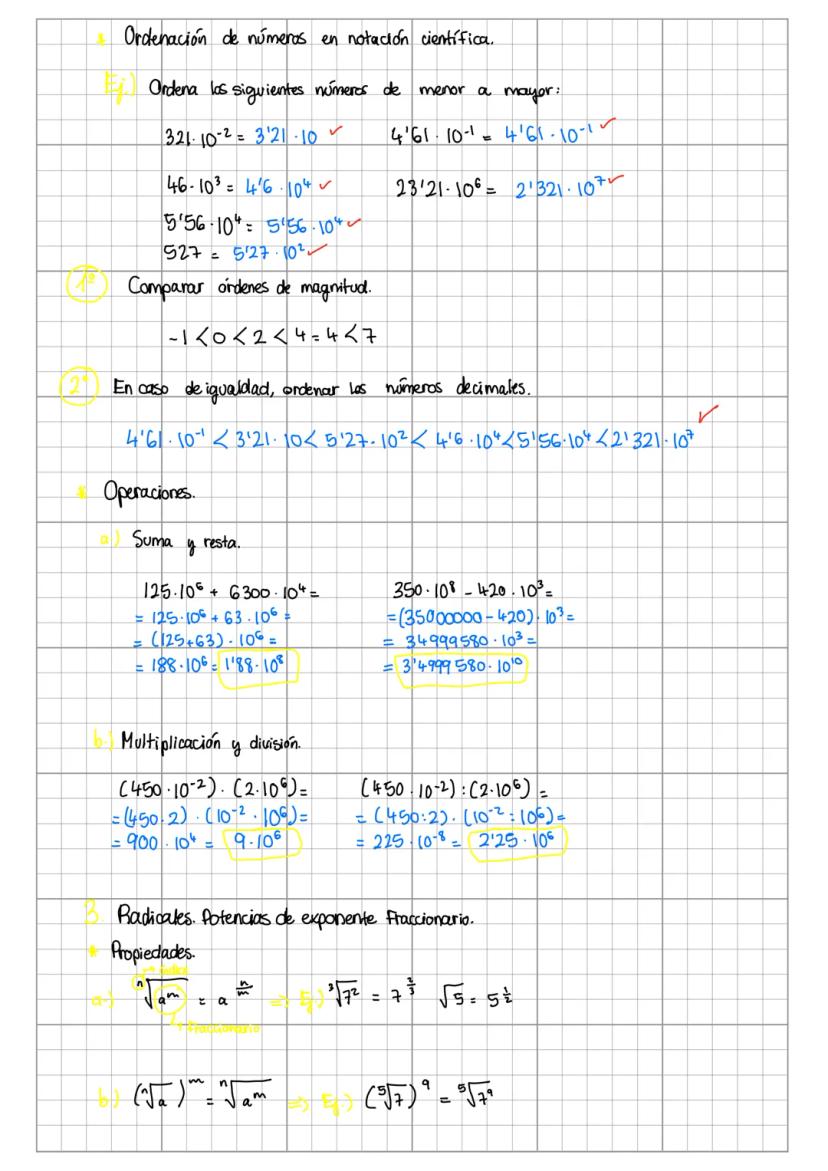 * Ordenación de números en notación científica.
Ej.) Ordena los siguientes números de menor a mayor:
321·10⁻² = 3'21·10 ✓ 4'61·10⁻¹ = 4'61·10⁻¹ ✓
46·10³ = 4'6·10⁴ ✓ 23'21·10⁶ = 2'321·10⁷ ✓
5'56·10⁴ = 5'56·10⁴ ✓
527 = 5'27·10² ✓
1º Comparar órdenes de magnitud.
-1 < 0 < 2 < 4 = 4 < 7
2º En caso de igualdad, ordenar los números decimales.
4'61·10⁻¹ < 3'21·10 < 5'27·10² < 4'6·10⁴ < 5'56·10⁴ < 2'321·10⁷ ✓
* Operaciones.
a.) Suma y resta.
125·10⁶ + 6300·10⁴ = 350·10⁸ - 420·10³ =
= 125·10⁶ + 63·10⁶ = = (35000000 - 420)·10³ =
= (125+63)·10⁶ = = 34999580·10³ =
= 188·10⁶ = 1'88·10⁸ = 3'4999580·10¹⁰
b.) Multiplicación y división.
(450·10⁻²)·(2·10⁶) = (450·10⁻²):(2·10⁶) =
= (450·2)·(10⁻²·10⁶) = = (450:2)·(10⁻²:10⁶) =
= 900·10⁴ = 9·10⁶ = 225·10⁻⁸ = 2'25·10⁶
3. Radicales. Potencias de exponente fraccionario.
* Propiedades.
índice
a.) ⁿ√aᵐ = a^(n/m) => Ej.) ³√7² = 7^(2/3) √5 = 5^(1/2)
Fraccionario
b.) (ⁿ√a)ᵐ = ⁿ√aᵐ => Ej.) (⁵√7)⁹ = ⁵√7⁹